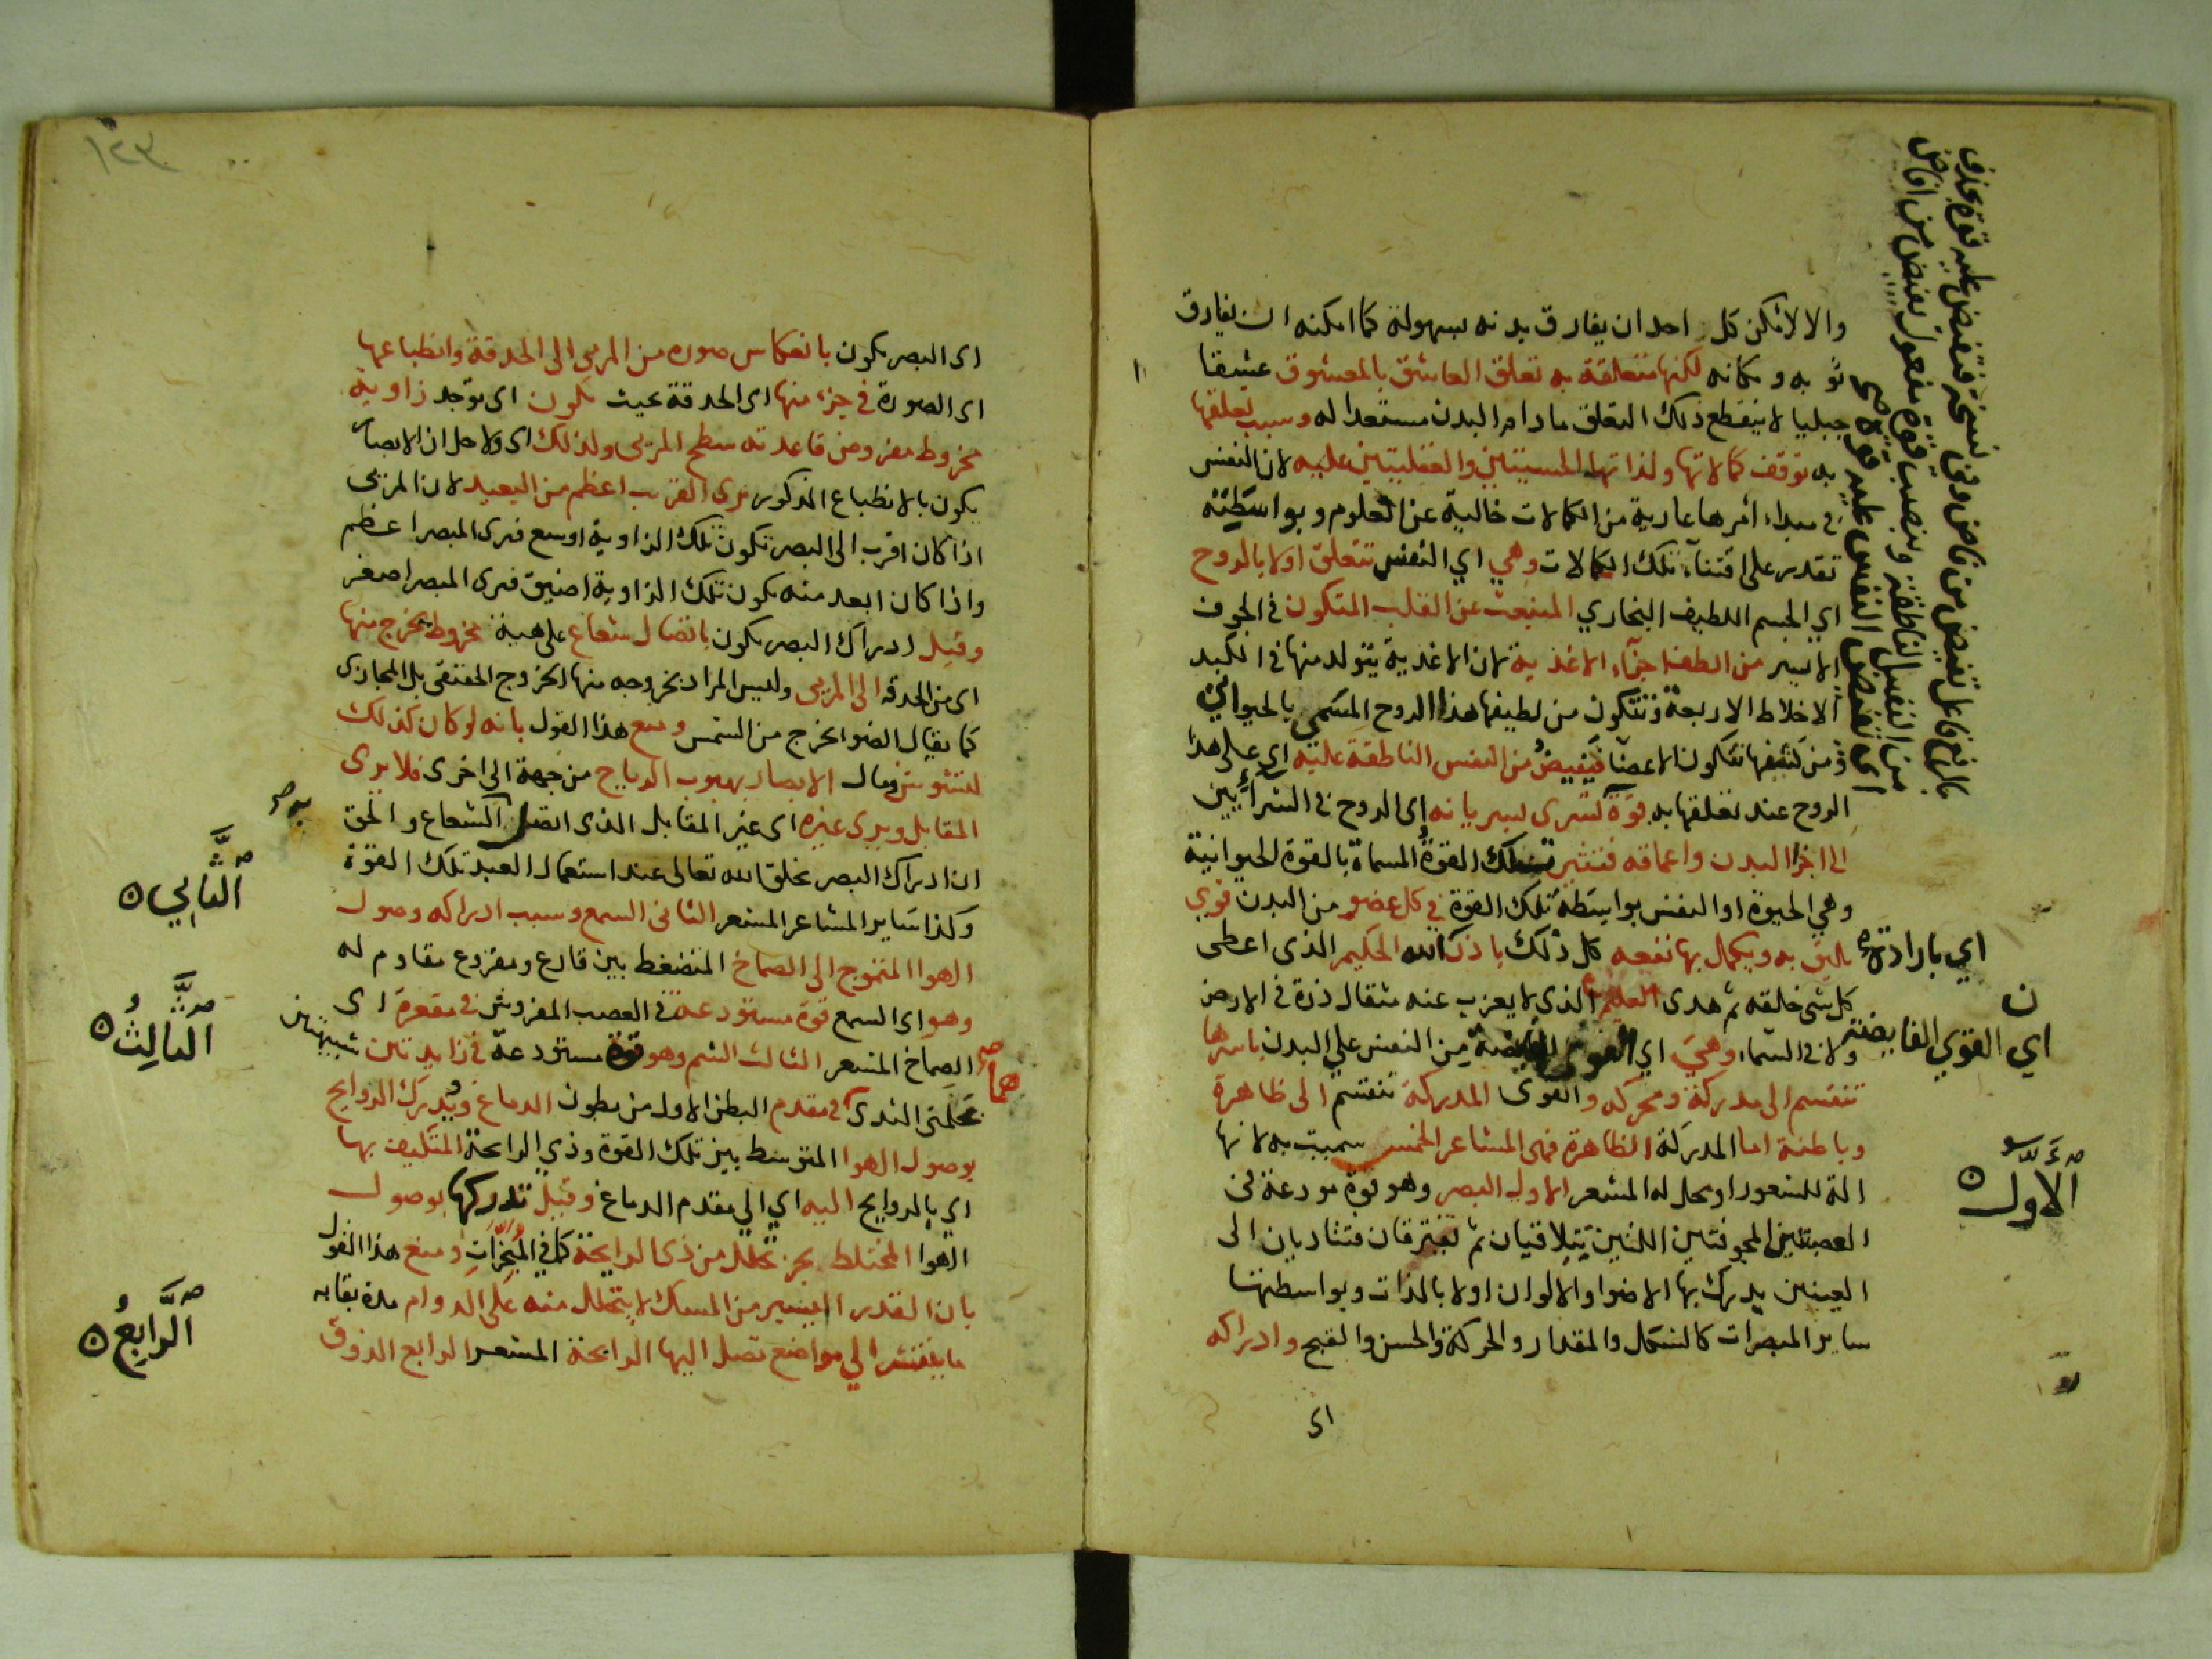 والا لامكن كل احد ان يفارق بدنه بسهولة كما امكنه ان يفارق
ثوبه ومكانه لكنها متعلقة به تعلق العاشق بالمعشوق عشقا
جبليا لا ينقطع ذلك التعلق ما دام البدن مستعدا له وسبب تعلقها
به توقف كمالاتها ولذاتها الحسيتين والعقليتين عليه لان النفس
في مبداء امرها عارية من الكمالات خالية عن العلوم وبواسطته
تقدر على اقتناء تلك الكمالات وهي اي النفس تتعلق اولا بالروح
اي الجسم اللطيف البخاري المنبعث عن القلب المتكون في الجوف
الايسر من الطف اجزاء الاغذية لان الاغذية يتولد منها في الكبد
الاخلاط الاربعة وتتكون من لطيفها هذا الروح المسمى بالحيواني
ومن كثيفها تتكون الاعضا فيفيض من النفس الناطقة عليه اي على هذا
الروح عند تعلقها به قوة تسرى بسريانه اى الروح في الشرايين
الى اجزا البدن واعماقه فتنتشر تلك القوة المسماة بالقوة الحيوانية
وهي الحيوة او النفس بواسطة تلك القوة في كل عضو من البدن قوي
يليق به ويكمل بها نفعه كل ذلك باذن الله الحكيم الذى اعطى
كل شى خلقه ثم هدى العليم الذى لا يعزب عنه مثقال ذرة في الارض
ولا في السماء وهي اي القوى الفايضة من النفس على البدن باسرها
تنقسم الى مدركة ومحركه والقوى المدركة تنقسم الى ظاهرة
وباطنة اما المدركة الظاهرة فهي المشاعر الخمس سميت به لانها
الة للشعور او محل له المشعر الاول البصر وهو قوة مودعة في
العصبتين المجوفتين اللتين يتلاقيان ثم تفترقان فتتاديان الى
العينين يدرك بها الاضوا والالوان اولا بالذات وبواسطتها
ساير المبصرات كالشكل والمقدار والحركة والحسن والقبح وادراكه
اى
بالرفع فاعل تفيض من فاض وفى نسخة فتفيض عليه قوة بحذف
من النفس الناطقة وبنصب قوة مفعول يفيض من افاض
اى تفيض النفس عليه قوة صح
اي بارادته
ن
اي القوي الفايضة
الاول
١٢٣
اى البصر يكون بانعكاس صوره من المرئى الى الحدقة وانطباعها
اى الصورة في جزء منها اى الحدقة بحيث يكون اى توجد زاوية
مخروط مفروض قاعدته سطح المرئى ولذلك اى ولاجل ان الابصار
يكون بالانطباع المذكور يرى القريب اعظم من البعيد لان المرئى
اذا كان اقرب الى البصر تكون تلك الزاوية اوسع فيرى المبصر اعظم
واذا كان ابعد منه تكون تلك الزاوية اضيق فيرى المبصر اصغر
وقيل ادراك البصر يكون باتصال شعاع على هيئة مخروط يخرج منها
اى من الحدقه الى المرئى وليس المراد بخروجه منها الخروج الحقيقى بل المجازى
كما يقال الضوا يخرج من الشمس ومنع هذا القول بانه لو كان كذلك
لتشوش ومال الابصار بهبوب الرياح من جهة الى اخرى فلا يرى
المقابل ويرى غيره اى غير المقابل الذى اتصل الشعاع والحق
ان ادراك البصر بخلق الله تعالى عند استعمال العبد تلك القوة
وكذا ساير المشاعر المشعر الثانى السمع وسبب ادراكه وصول
الهوا المتموج الى الصماخ المنضغط بين قارع ومقروع مقاوم له
وهو اى السمع قوة مستودعة في العصب المفروش في مقعرة اى
الصماخ المشعر الثالث الشم وهو قوة مستودعة في زايدتين شبيهتين
بحلمتى الثدى في مقدم البطن الاول من بطون الدماغ ويدرك الروايح
بوصول الهوا المتوسط بين تلك القوة وذي الرايحة المتكيف بها
اي بالروايح اليه اي الي مقدم الدماغ وقيل تدركها بوصول
الهوا المختلط بجز تحلل من ذى الرايحة كما في المبخرات ومنع هذا القول
بان القدر اليسير من المسك لا يتحلل منه على الدوام مدة بقايه
ما ينتشر الي مواضع تصل اليها الرايحة المشعر الرابع الذوق
به صح
هما صح
الثاني
الثالث
الرابع